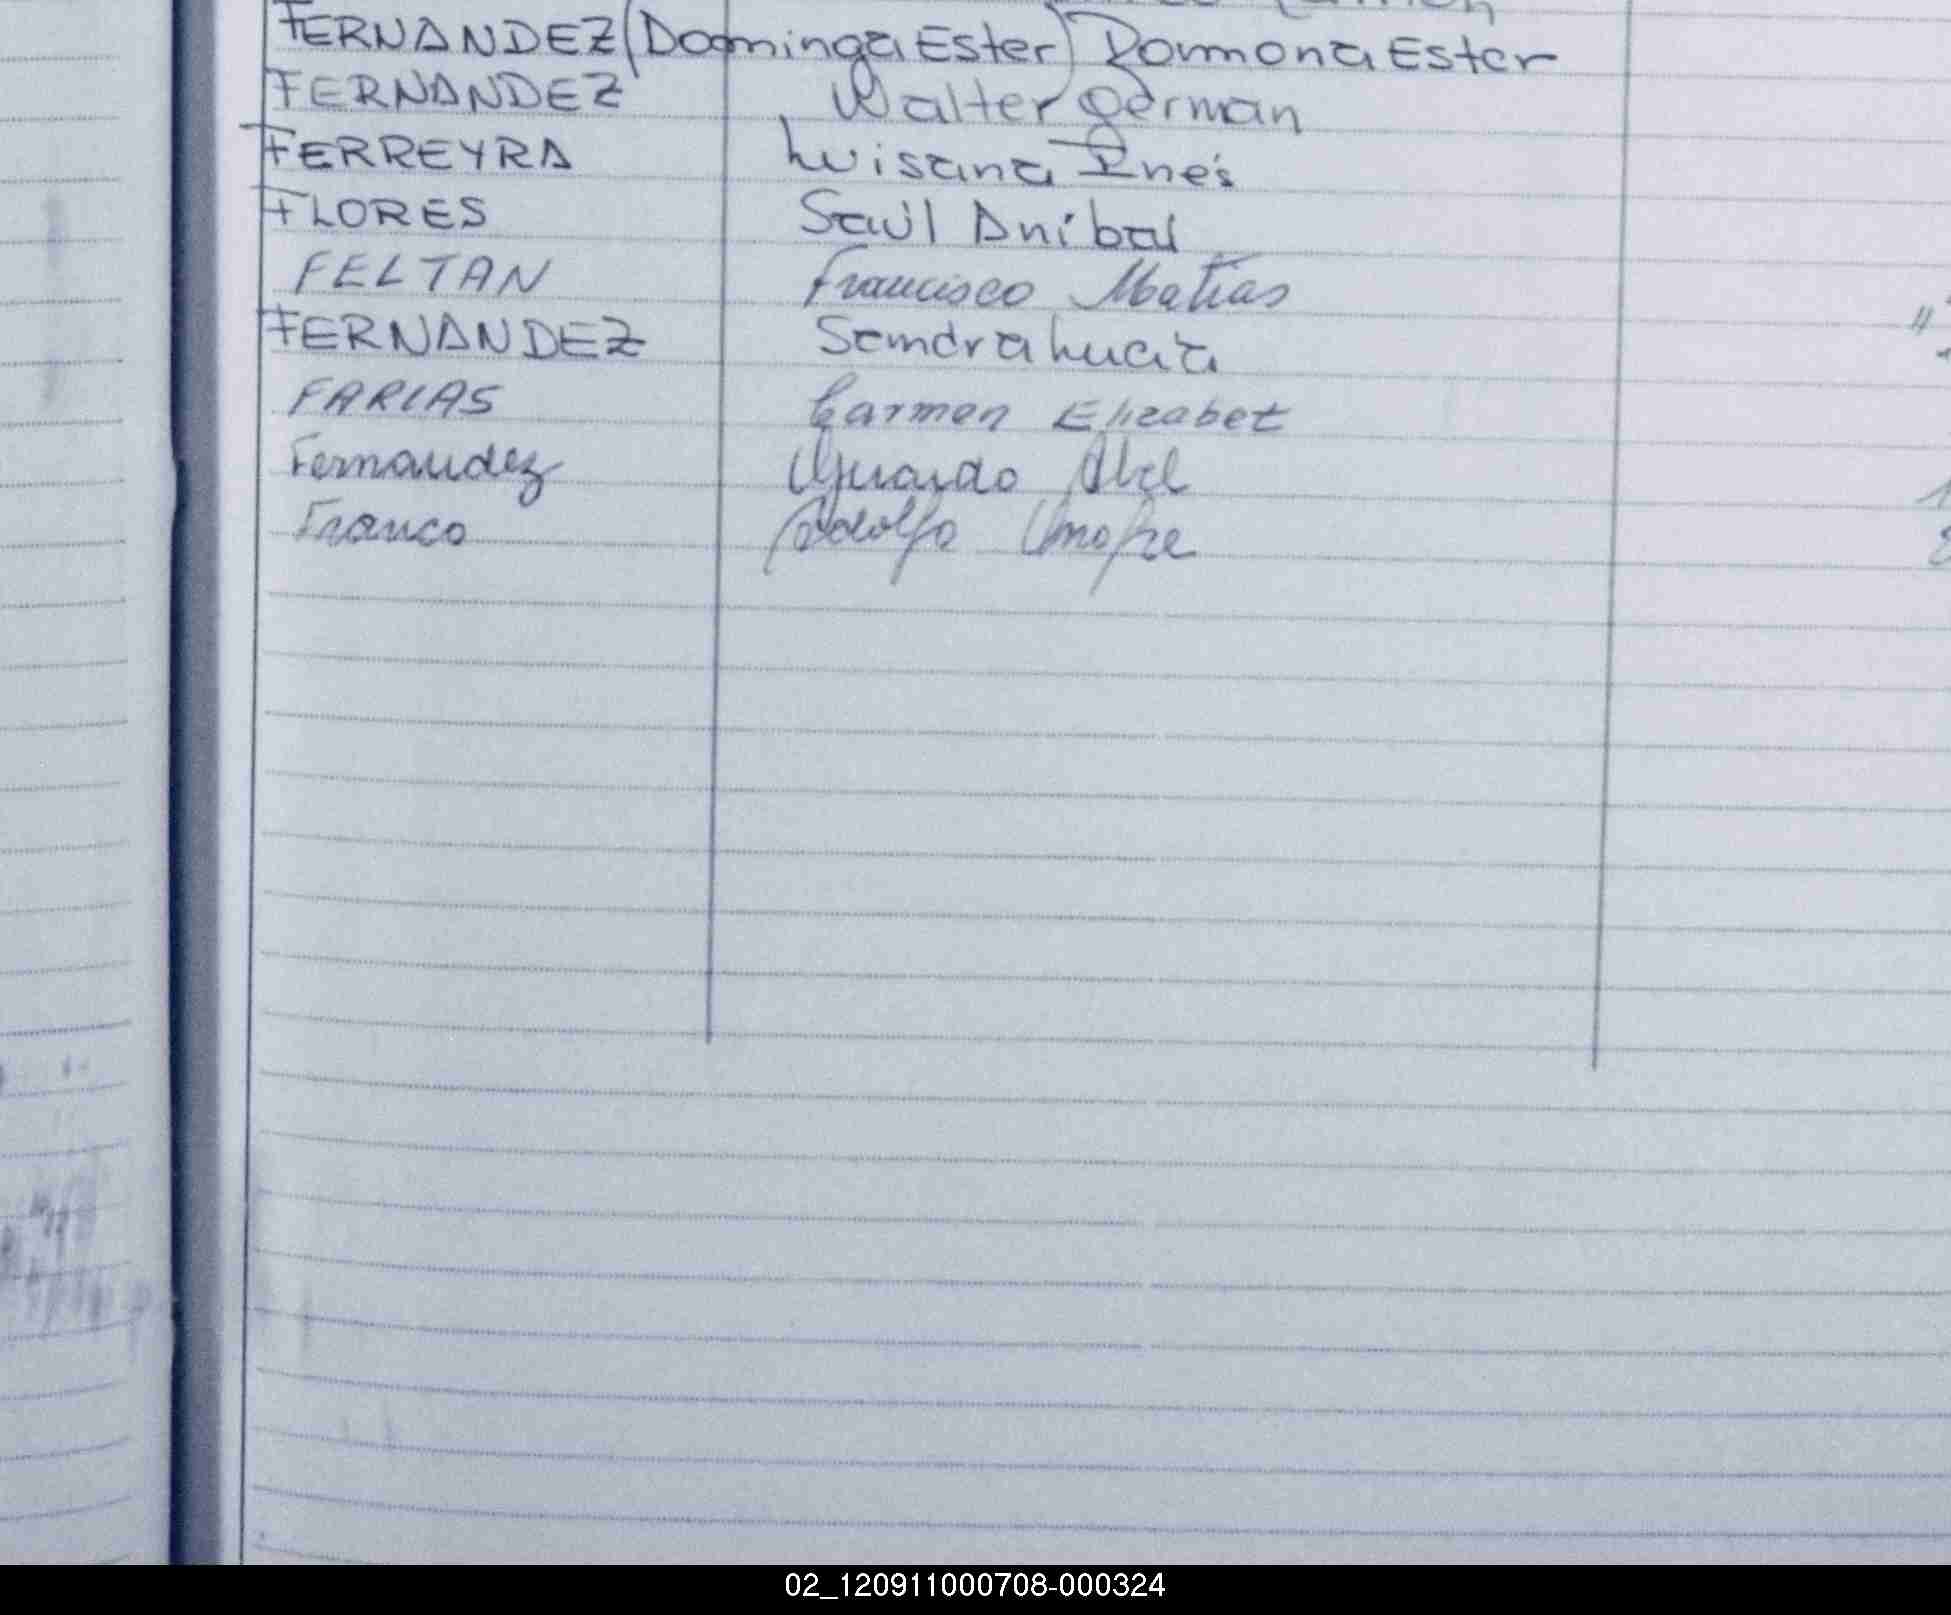 FERNANDEZ (Dominga Ester) Romona Ester
FERNANDEZ Walter German
FERREYRA Luisana Inés
FLORES Saúl Aníbal
FELTAN Francisco Matias
FERNANDEZ Sandra Lucia
FARIAS Carmen Elizabet
Fernandez Abel
Franco Adolfo Onofre
02_120911000708-000324